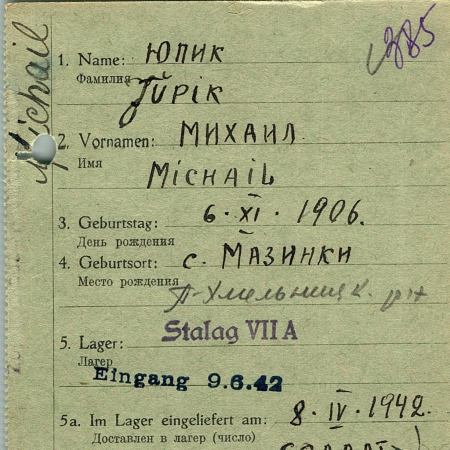 385
Michail
1. Name: ЮПИК
Фамилия
Jupik
2. Vornamen: МИХАИЛ
Имя
MichaiL
3. Geburtstag: 6. XI. 1906.
День рождения
4. Geburtsort: с. МАЗИНКИ
Место рождения
П-Хмельницк. р-н
5. Lager: Stalag VII A
Лагер
Eingang 9.6.42
5a. Im Lager eingeliefert am: 8. IV. 1942.
Доставлен в лагер (число)